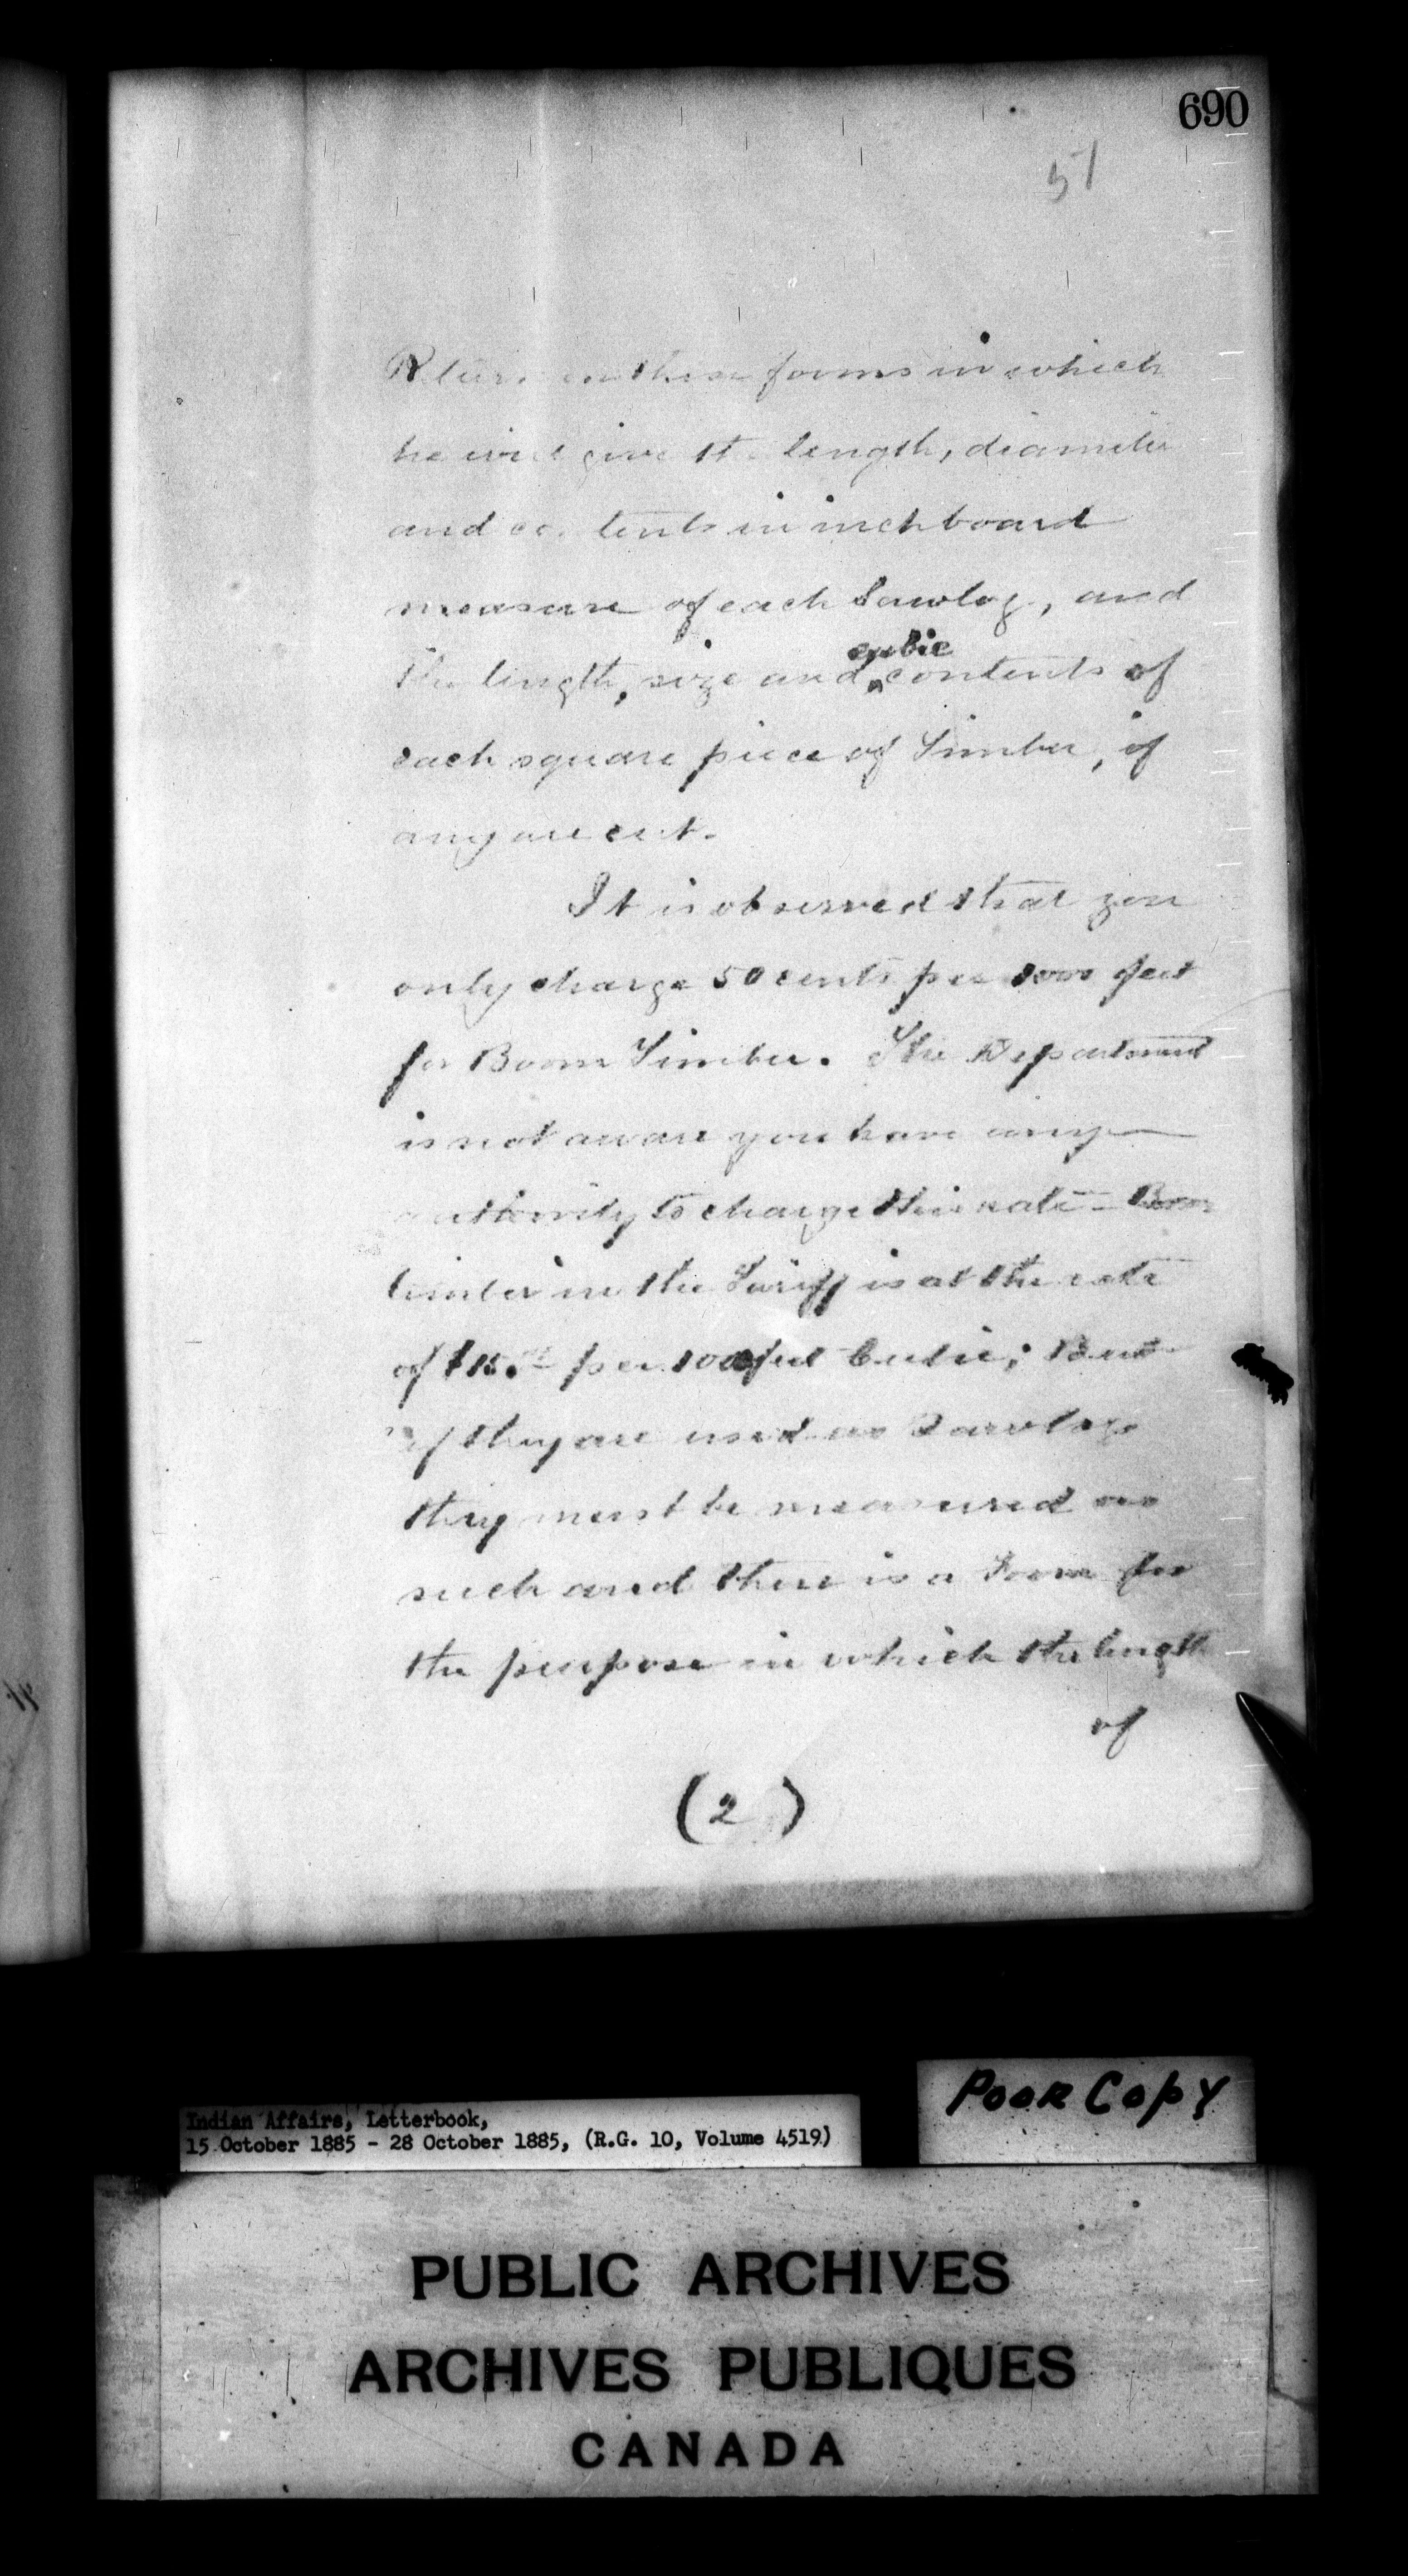 690
51
Return on these forms in which
he will give the length, diameter
and contents in inch board
measure of each Sawlog, and
cubic
the length, size and contents of
each square piece of Timber, if
any are cut.
It is observed that you
only charge 50 cents per 1000 feet
for Boom Timber. The Department
is not aware you have any
authority to charge this rate - Boom
timber in the Tariff is at the rate
of $15. per 1000 feet Cubic; But
if they are used as Sawlogs
they must be measured as
such and there is a Form for
the purpose in which the length
of
(2)
Poor Copy
Indian Affairs, Letterbook,
15 October 1885 - 28 October 1885, (R.G. 10, Volume 4519)
PUBLIC ARCHIVES
ARCHIVES PUBLIQUES
CANADA